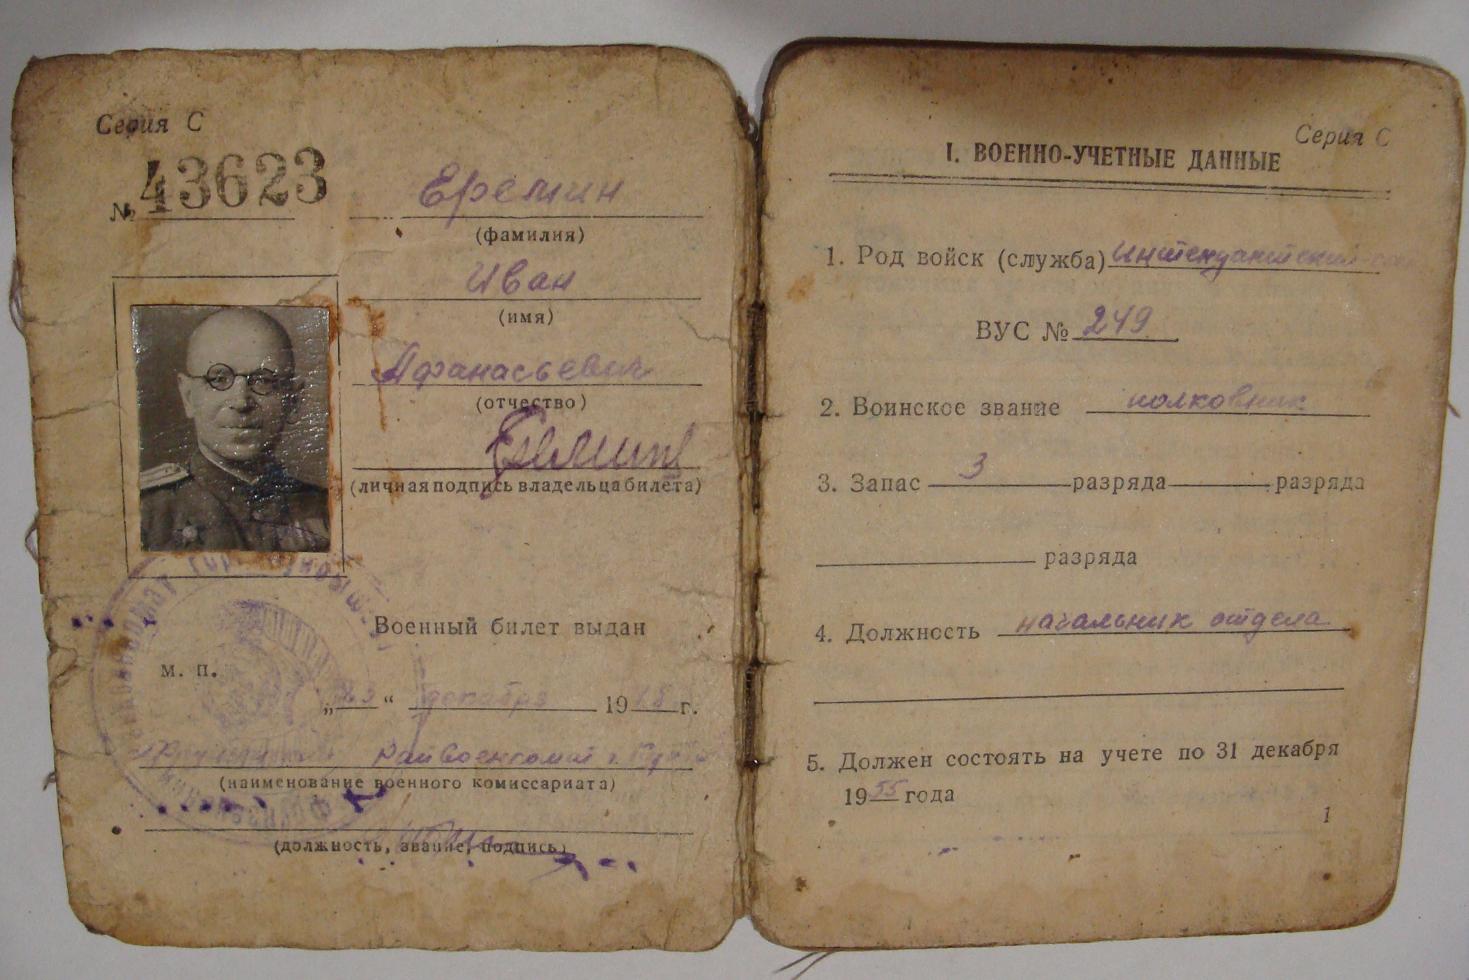 Серия С
№ 43623
Еремин
(фамилия)
Иван
(имя)
Афанасьевич
(отчество)
Еремин
(личная подпись владельца билета)
Военный билет выдан
м. п.
„23“ декабря 19 г.
Райвоенкомат г.
(наименование военного комиссариата)
(должность, звание, подпись)
Серия С
I. ВОЕННО-УЧЕТНЫЕ ДАННЫЕ
1. Род войск (служба) Интендантский
ВУС № 249
2. Воинское звание полковник
3. Запас 3 разряда разряда
разряда
4. Должность начальник отдела
5. Должен состоять на учете по 31 декабря
1955 года
1